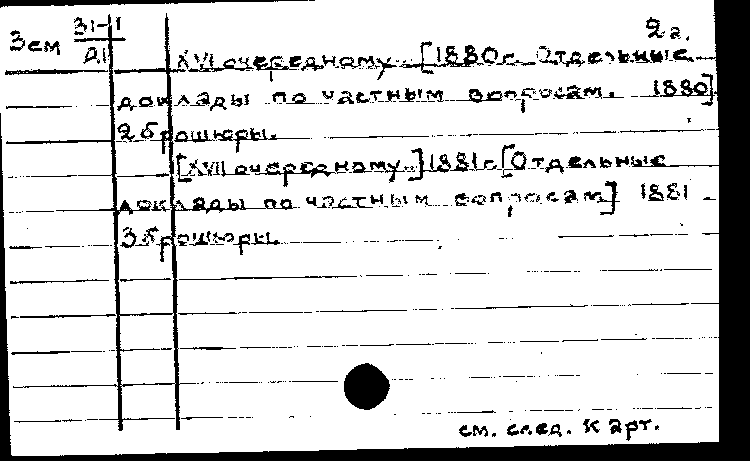 Зем 31-1 2а.
Д1
XVI очередному.. [1880 г. Отдельные
доклады по частным вопросам. 1880].
2 брошюры.
[XVII очередному..] 1881 г. [Отдельные
доклады по частным вопросам] 1881 -
3 брошюры.
см. след. карт.